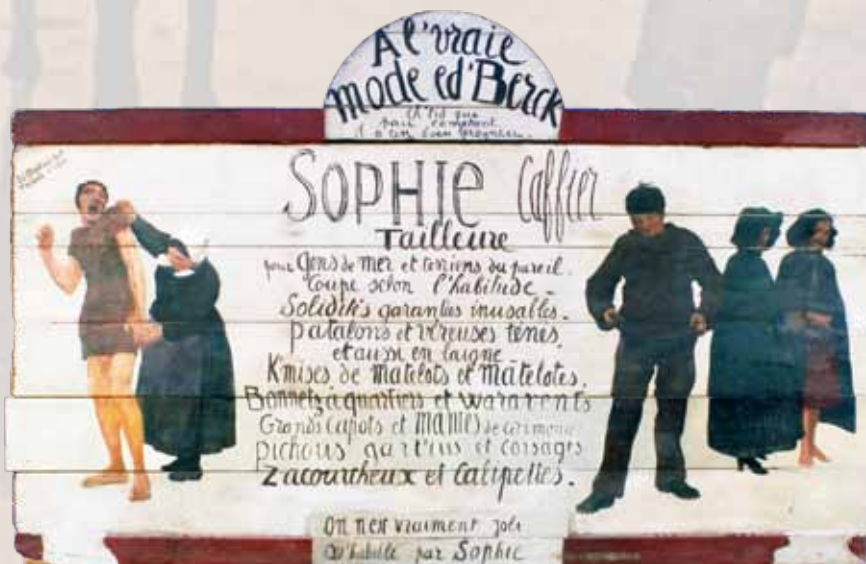 A l'vraie
mode ed'Berck
SOPHIE Caffier
Tailleure
pour Gens de mer et terriens du pareil.
Coupe selon l'habitude.
Solidités garanties inusables.
patalons et vireuses tenes
et aussi en laigne
K'mises de matelots et matelotes.
Bonnetz à quartiers et wararents
Grands capots et mantes de cérimonie
pichous gart'ins et corsages
Zacourcheux et Calipettes.
On n'est vraiment joli
Qu'habillé par Sophie